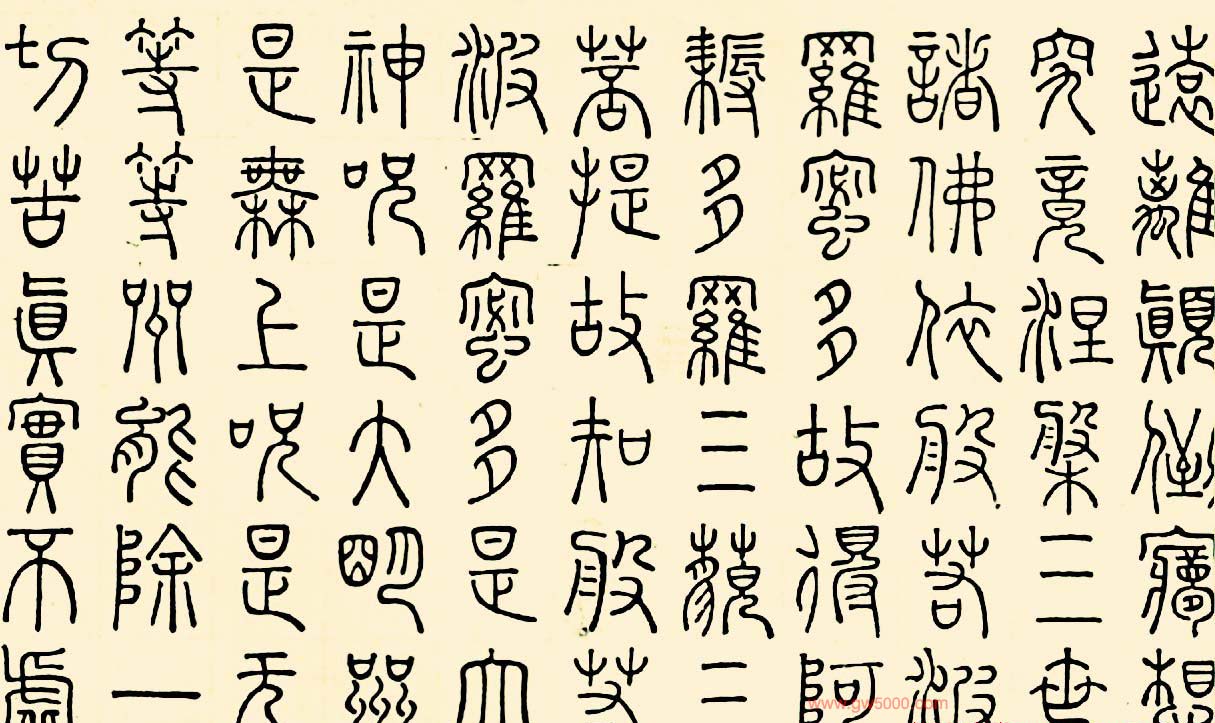 遠離顛倒夢想
究竟涅槃三世
諸佛依般若波
羅蜜多故得阿
耨多羅三藐三
菩提故知般若
波羅蜜多是大
神咒是大明咒
是無上咒是无
等等咒能除一
切苦眞實不虛
www.gw5000.com